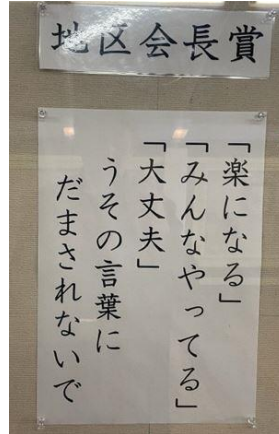 地区会長賞
「楽になる」
「みんなやってる」
「大丈夫」
うその言葉に
だまされないで